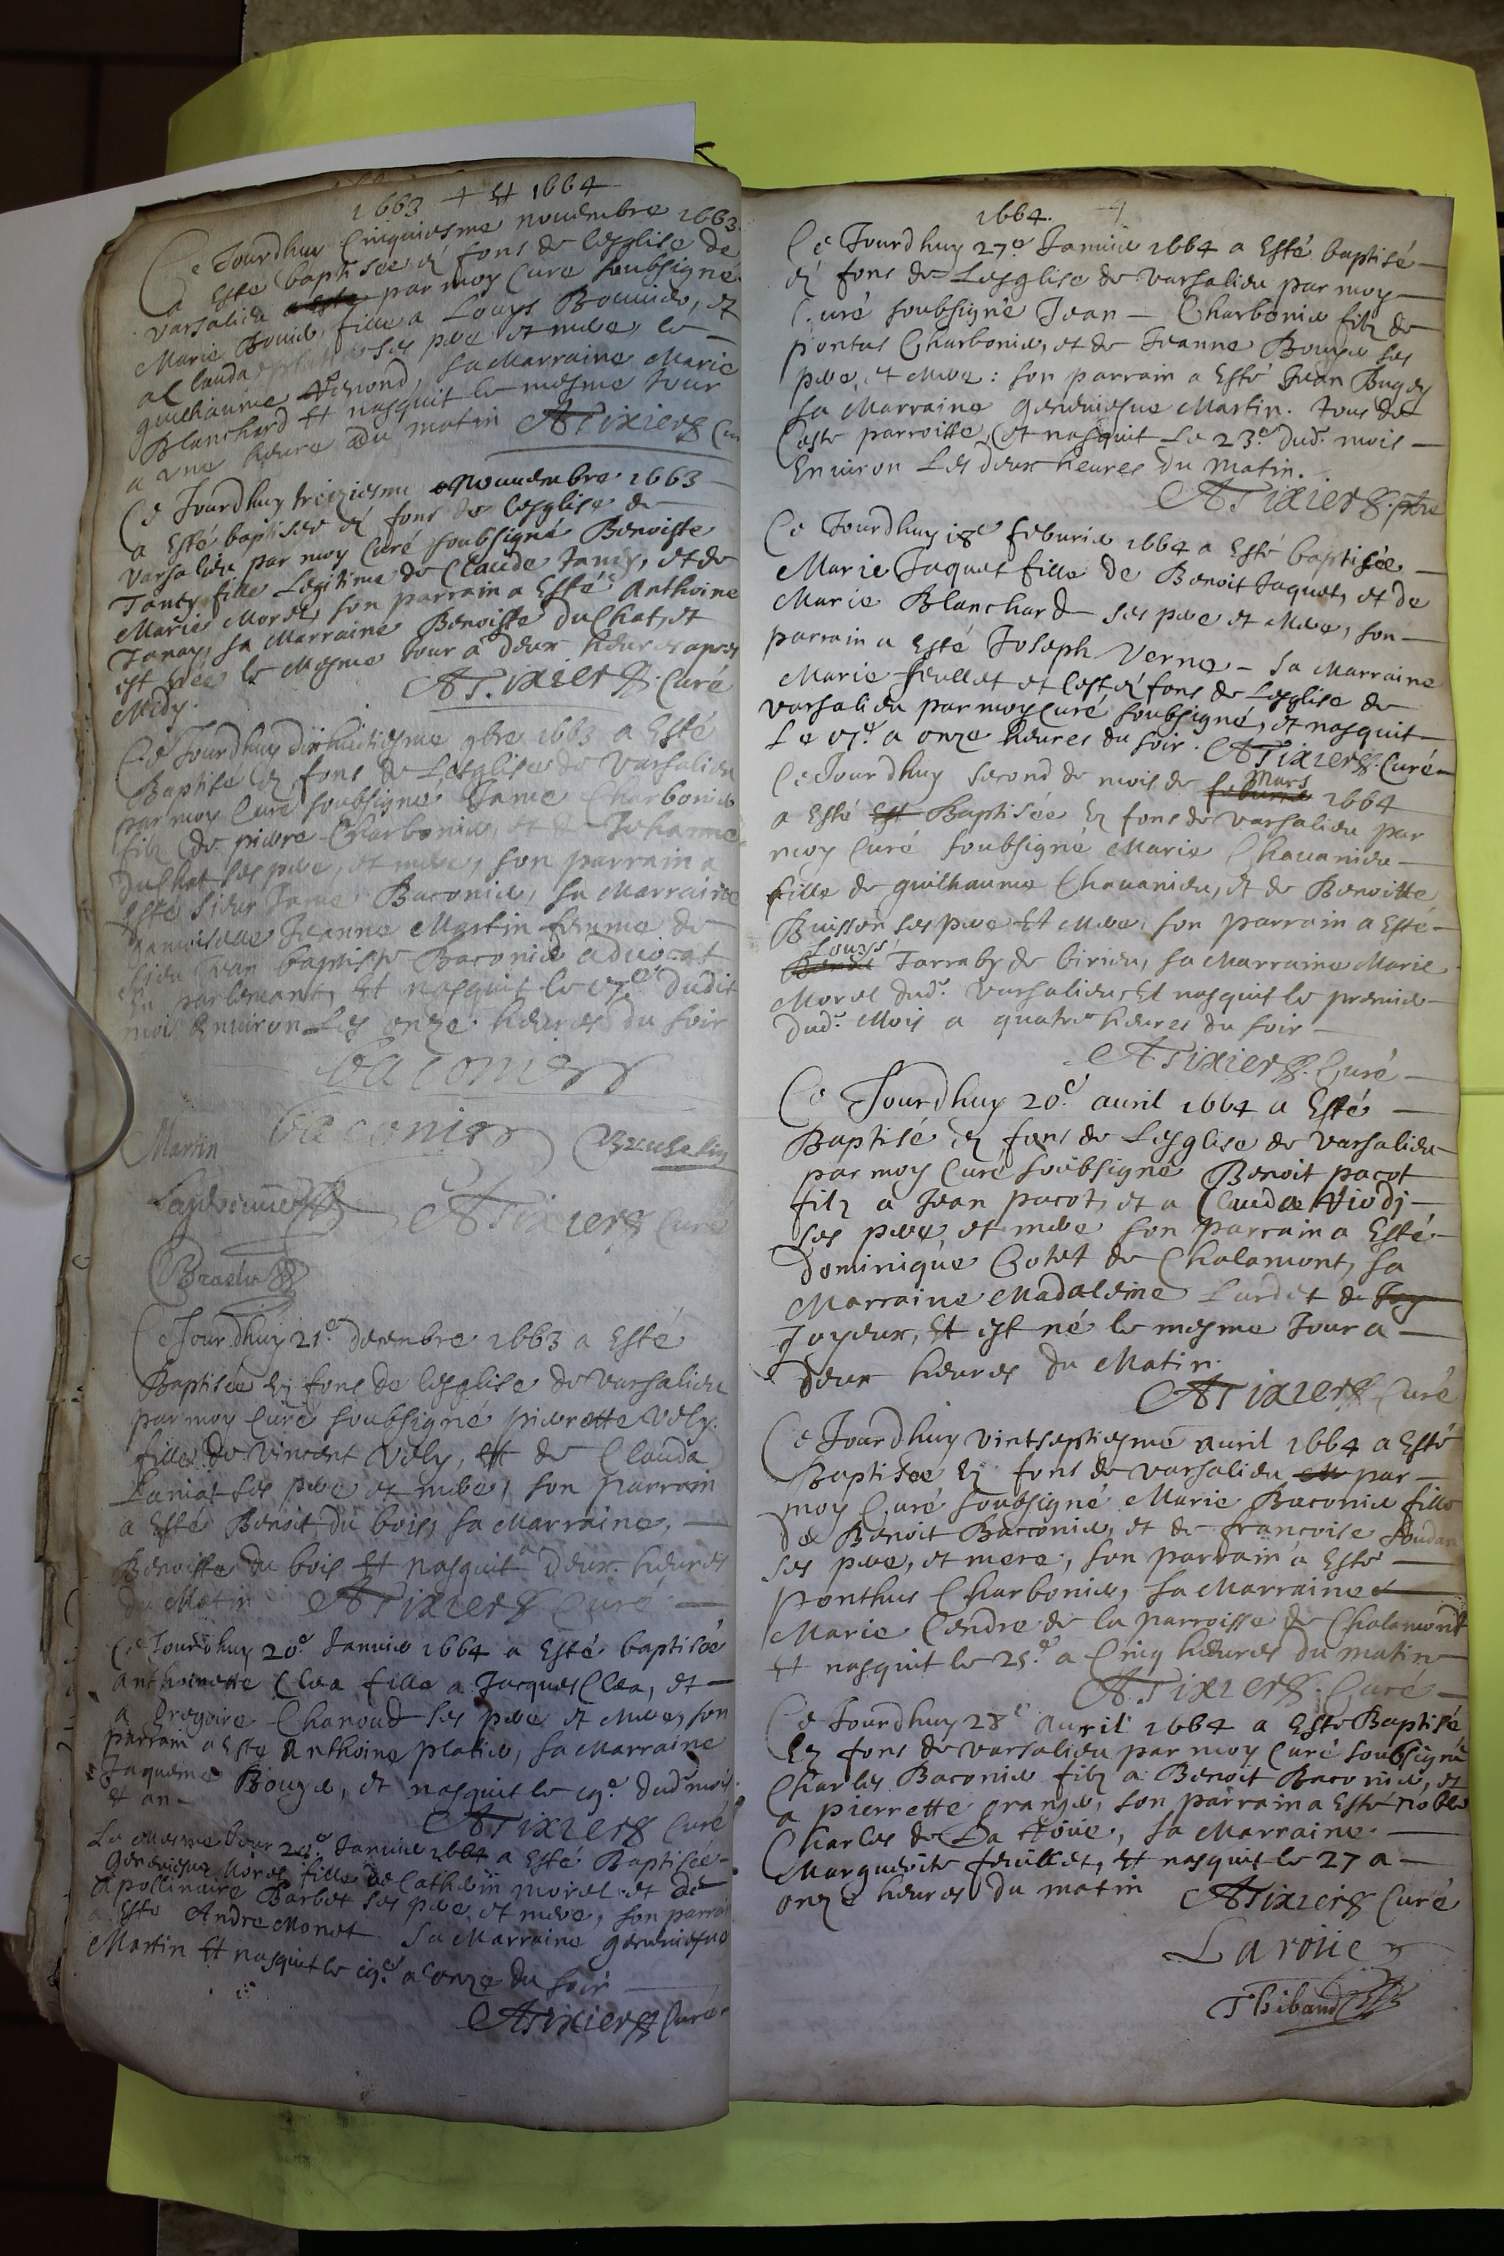 1663 et 1664
Ce Jourdhuy Cinquiesme nouembre 1663
a Esté baptisée és fons de lesglise de
varsalieu par moy Curé soubsigné
Marie Bouuié, fille a Louys Bouuier, et
a Clauda ses pere et mere, le
guilhaume sa Marraine Marie
Blanchard Et nasquit le mesme Jour
a vne heure du matin ATixier Cu
Ce Jourdhuy treiziesme Nouuembre 1663
a Esté baptisée és fons de lesglise de
varsalieu par moy Curé soubsigné Benoiste
Tancy fille Legitime de Claude Tancy, et de
Marie Morel, son parrain a Esté Anthoine
Tanay, sa Marraine Benoiste duChat, et
est née le Mesme Jour a deux heures apres
Midy. ATixier Curé
Ce Jourdhuy dixhuitiesme 9bre 1663 a Esté
Baptisé és fons de Lesglise de varsalieu
par moy Curé soubsigné Jame Charbonier
filz de pierre Charbonier, et de Jehanne
duChat ses pere, et mere, son parrain a
Esté sieur Jame Baconier, sa Marraine
damoiselle Jeanne Martin femme de
sieur Jean baptiste Baconier aduocat
en parlement, Et nasquit le 17e dudit
mois Enuiron Les onze heures du soir
baconier
Martin baconier
ATixier Curé
Ce Jourdhuy 21e decembre 1663 a Esté
Baptisée és fons de lesglise de varsalieu
par moy Curé soubsigné pierrette Vely
fille de vincent Vely, et de Clauda
Laniat ses pere et mere, son parrain
a Esté Benoit du bois, sa Marraine
Benoiste du bois Et nasquit a deux heures
du Matin ATixier Curé
Ce Jourdhuy 20e Januier 1664 a Esté baptisée
anthoinette Clea fille a Jacques Clea, et
a gregoire Chanoud ses pere et mere, son
parrain a Esté Anthoine platier, sa Marraine
Jaqueme Bouger, et nasquit le 19e dud. mois
et an
ATixier Curé
Le mesme Jour 20e Januier 1664 a Esté Baptisée
geneuiesue Morel fille de Catherin morel et de
apollinaire Barbet ses pere, et mere, son parrain
a Esté André Monet sa Marraine geneuiesue
Martin Et nasquit le 19e a onze du soir
ATixier Curé
1664.
Ce Jourdhuy 27e Januier 1664 a Esté baptisé
és fons de Lesglise de varsalieu par moy
Curé soubsigné Jean Charbonier filz de
pontus Charbonier, et de Jeanne Bouger ses
pere, et Mere: son parrain a Esté Jean Bugey
sa Marraine geneuiesue Martin. Tous de
Ceste parroisse, Et nasquit Le 23e dud. mois
Enuiron Les deux heures du matin.
ATixier ptre
Ce Jourdhuy 18e feburier 1664 a Esté baptisée
Marie Jaquet fille de Benoit Jaquet, et de
Marie Blanchard ses pere et Mere, son
parrain a Esté Joseph Verne sa Marraine
Marie feullet et Cest és fons de Lesglise de
varsalieu par moy Curé soubsigné, et nasquit
Le 17e a onze heures du soir. ATixier Curé
Ce Jourdhuy second de mois de Mars 1664
a Esté Et Baptisée és fons de varsalieu par
moy Curé soubsigné Marie Chauanieu
fille de guilhaume Chauanieu, et de Benoitte
Buisson ses pere Et Mere, son parrain a Esté
Louys Tarraby de birieu, sa Marraine Marie
Morel dud. varsalieu, Et nasquit le premier
dud. Mois a quatre heures du soir
ATixier Curé
Ce Jourdhuy 20e auril 1664 a Esté
Baptisé és fons de Lesglise de varsalieu
par moy Curé soubsigné Benoit pacot
filz a Jean pacot, et a Claudae
ses pere, et mere son parrain a Esté
dominique Cotet de Chalamont, sa
Marraine Madaleine Lardet de
Joyeux, Et est né le mesme Jour a
deux heures du Matin.
ATixier Curé
Ce Jourdhuy vintseptiesme auril 1664 a Esté
Baptisée és fons de varsalieu par
moy Curé soubsigné Marie Baconier fille
de Benoit Bacconier, et de francoise
ses pere, et mere, son parrain a Esté
Ponthus Charbonier, sa Marraine
Marie Cendre de la parroisse de Chalamont
Et nasquit le 25e a Cinq heures du matin
ATixier Curé
Ce Jourdhuy 28e auril 1664 a Esté Baptisé
és fons de varsalieu par moy Curé soubsigné
Charles Baconier filz a Benoit Baconier, et
a pierrette granger, son parrain a Esté noble
Charles de La Roüe, sa Marraine
Marguerite feuillet, Et nasquit le 27 a
onze heures du matin ATixier Curé
Laroüe
Thibaud